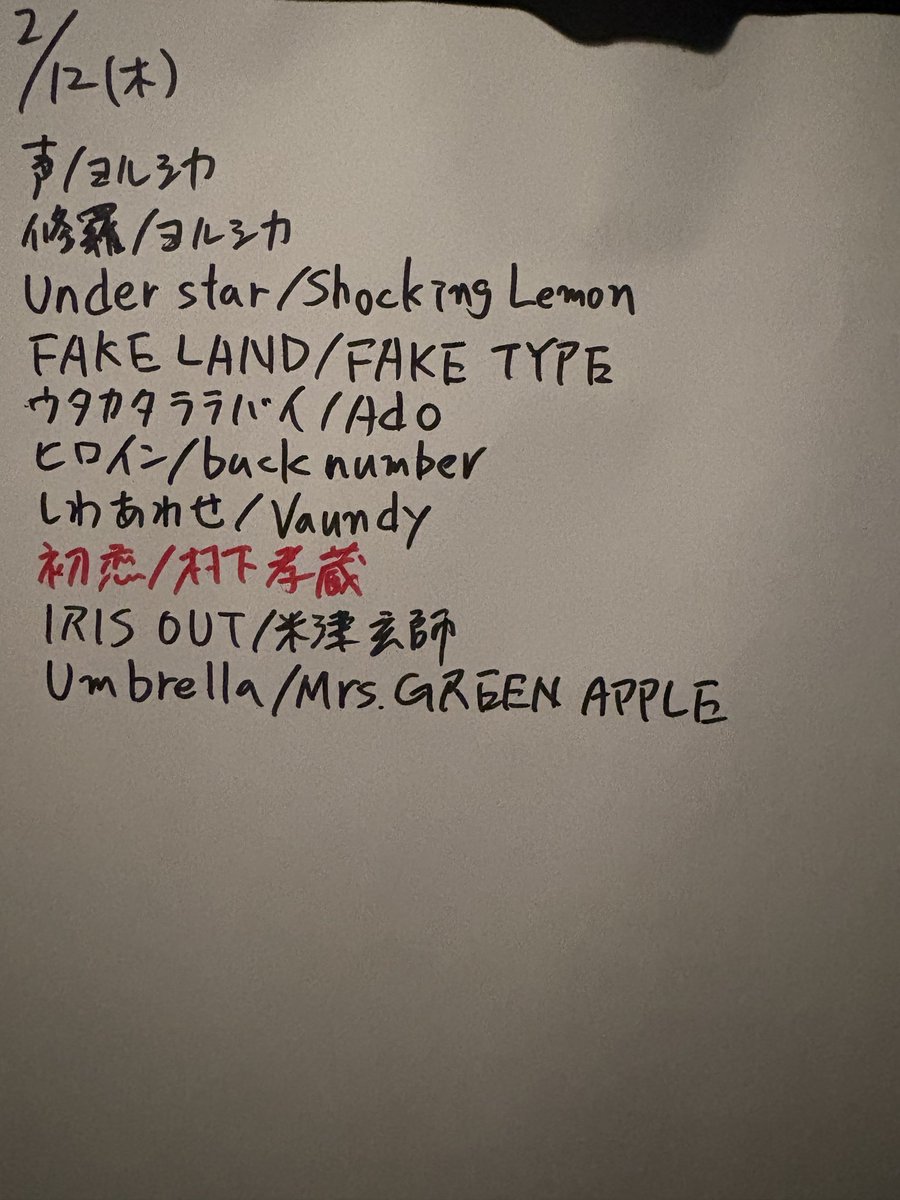 2/12(木)
声/ヨルシカ
修羅/ヨルシカ
Under star/Shocking Lemon
FAKE LAND/FAKE TYPE
ウタカタララバイ/Ado
ヒロイン/back number
しわあわせ/Vaundy
初恋/村下孝蔵
IRIS OUT/米津玄師
Umbrella/Mrs. GREEN APPLE